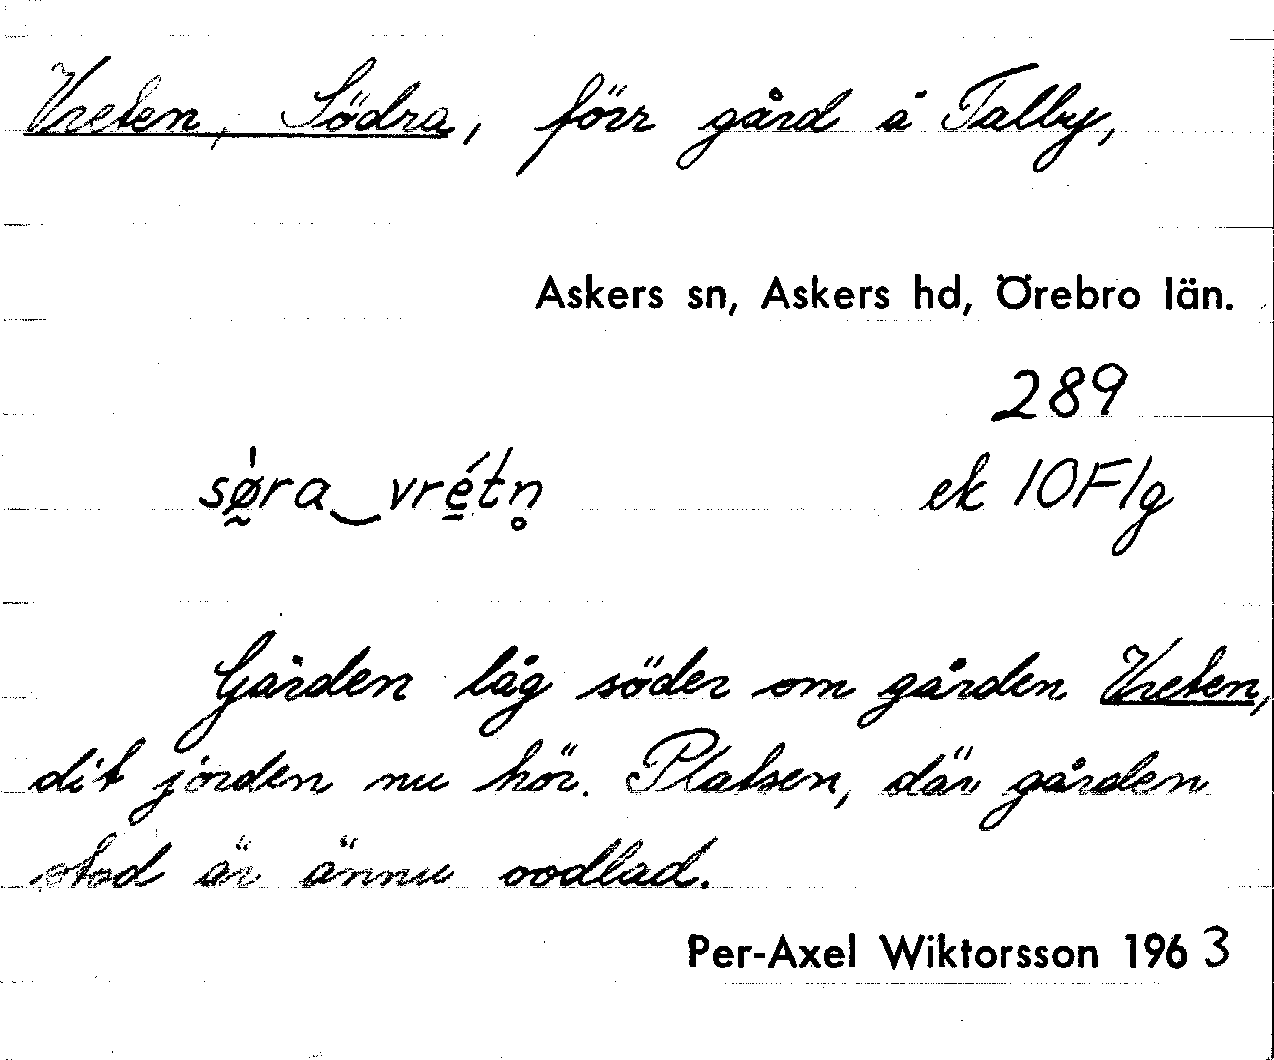 Vreten, Södra, förr gård å Tallby,
Askers sn, Askers hd, Örebro län.
289
sǿ̰ra‿vré̱tn̥ ek 10F1g
Gården låg söder om gården Vreten,
dit jorden nu hör. Platsen, där gården
stod är ännu oodlad.
Per-Axel Wiktorsson 1963